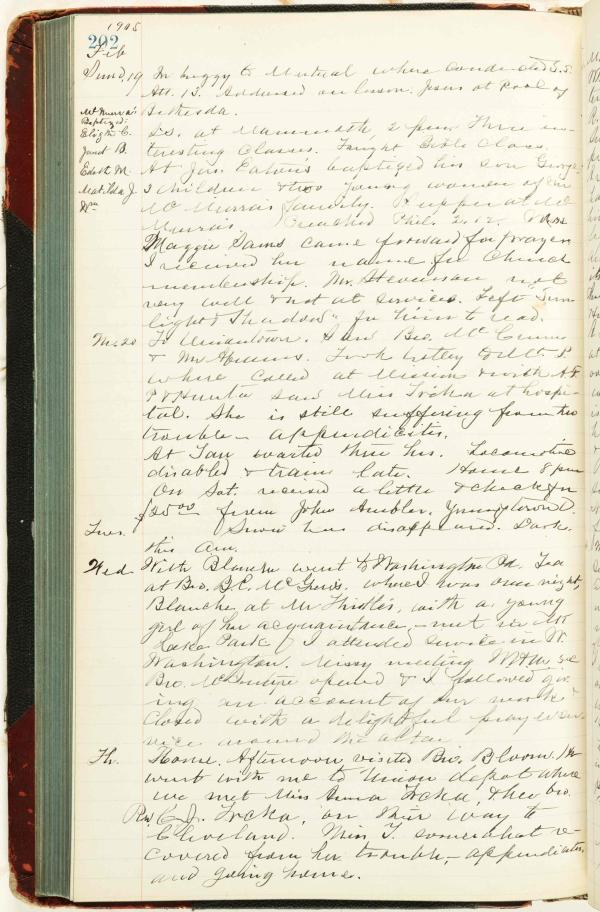 1905
202
Feb
Sund. 19 In buggy to Mutual where conducted S.S.
Att. 13. Addressed on lesson. Jesus at Pool of
Bethesda.
Mt Murra's
Baptized:
Eliz'th C.
Janet B.
Edith M.
Matilda J.
Wm
S.S. at Mammoth, 2 p.m. Three in-
teresting classes. Taught Bible Class.
At Jas. Eaton's baptized his son George
3 children & two young women of the
Mc Murra's family. Supper at Mc
Murras. Preached Phil. 2:12.
Maggie Sams came forward for prayers
I received her name for Church
membership. Mr. Stevenson not
very well & not at services. Left "Sun-
light & Shadow" for him to read.
Mo. 20 To Uniontown. Saw Bro. Mc
& Mr Adams. Took trolley to Mt. P.
where called at Mission & with
& Hunter saw Miss Trcka at hospi-
tal. She is still suffering from her
trouble – appendicitis.
At Tarr waited three hrs. Locomotive
disabled & trains late. Home 8 p.m
On Sat. received a letter & check for
$25.00 from John Ambler, Youngstown O.
Tues. Snow has disappeared. Dark
this a.m.
Wed. With Blanche went to Washington Pa. Tea
at Bro. B.C. where I was over night,
Blanche at Mr Thistle's, with a young
girl of her acquaintance – met in Mt
Lake Park. I attended service in W.
Washington. Missy meeting
Bro. McIntyre opened & I followed giv-
ing an account of our work.
Closed with a delightful prayer ser-
vice around the altar.
Th. Home. Afternoon visited Bro. Bloom. He
went with me to Union depot where
we met Miss Anna Trcka, & her bro.
Rev. C. J. Trcka, on their way to
Cleveland. Miss T. somewhat re-
covered from her trouble, – appendicitis,
and going home.